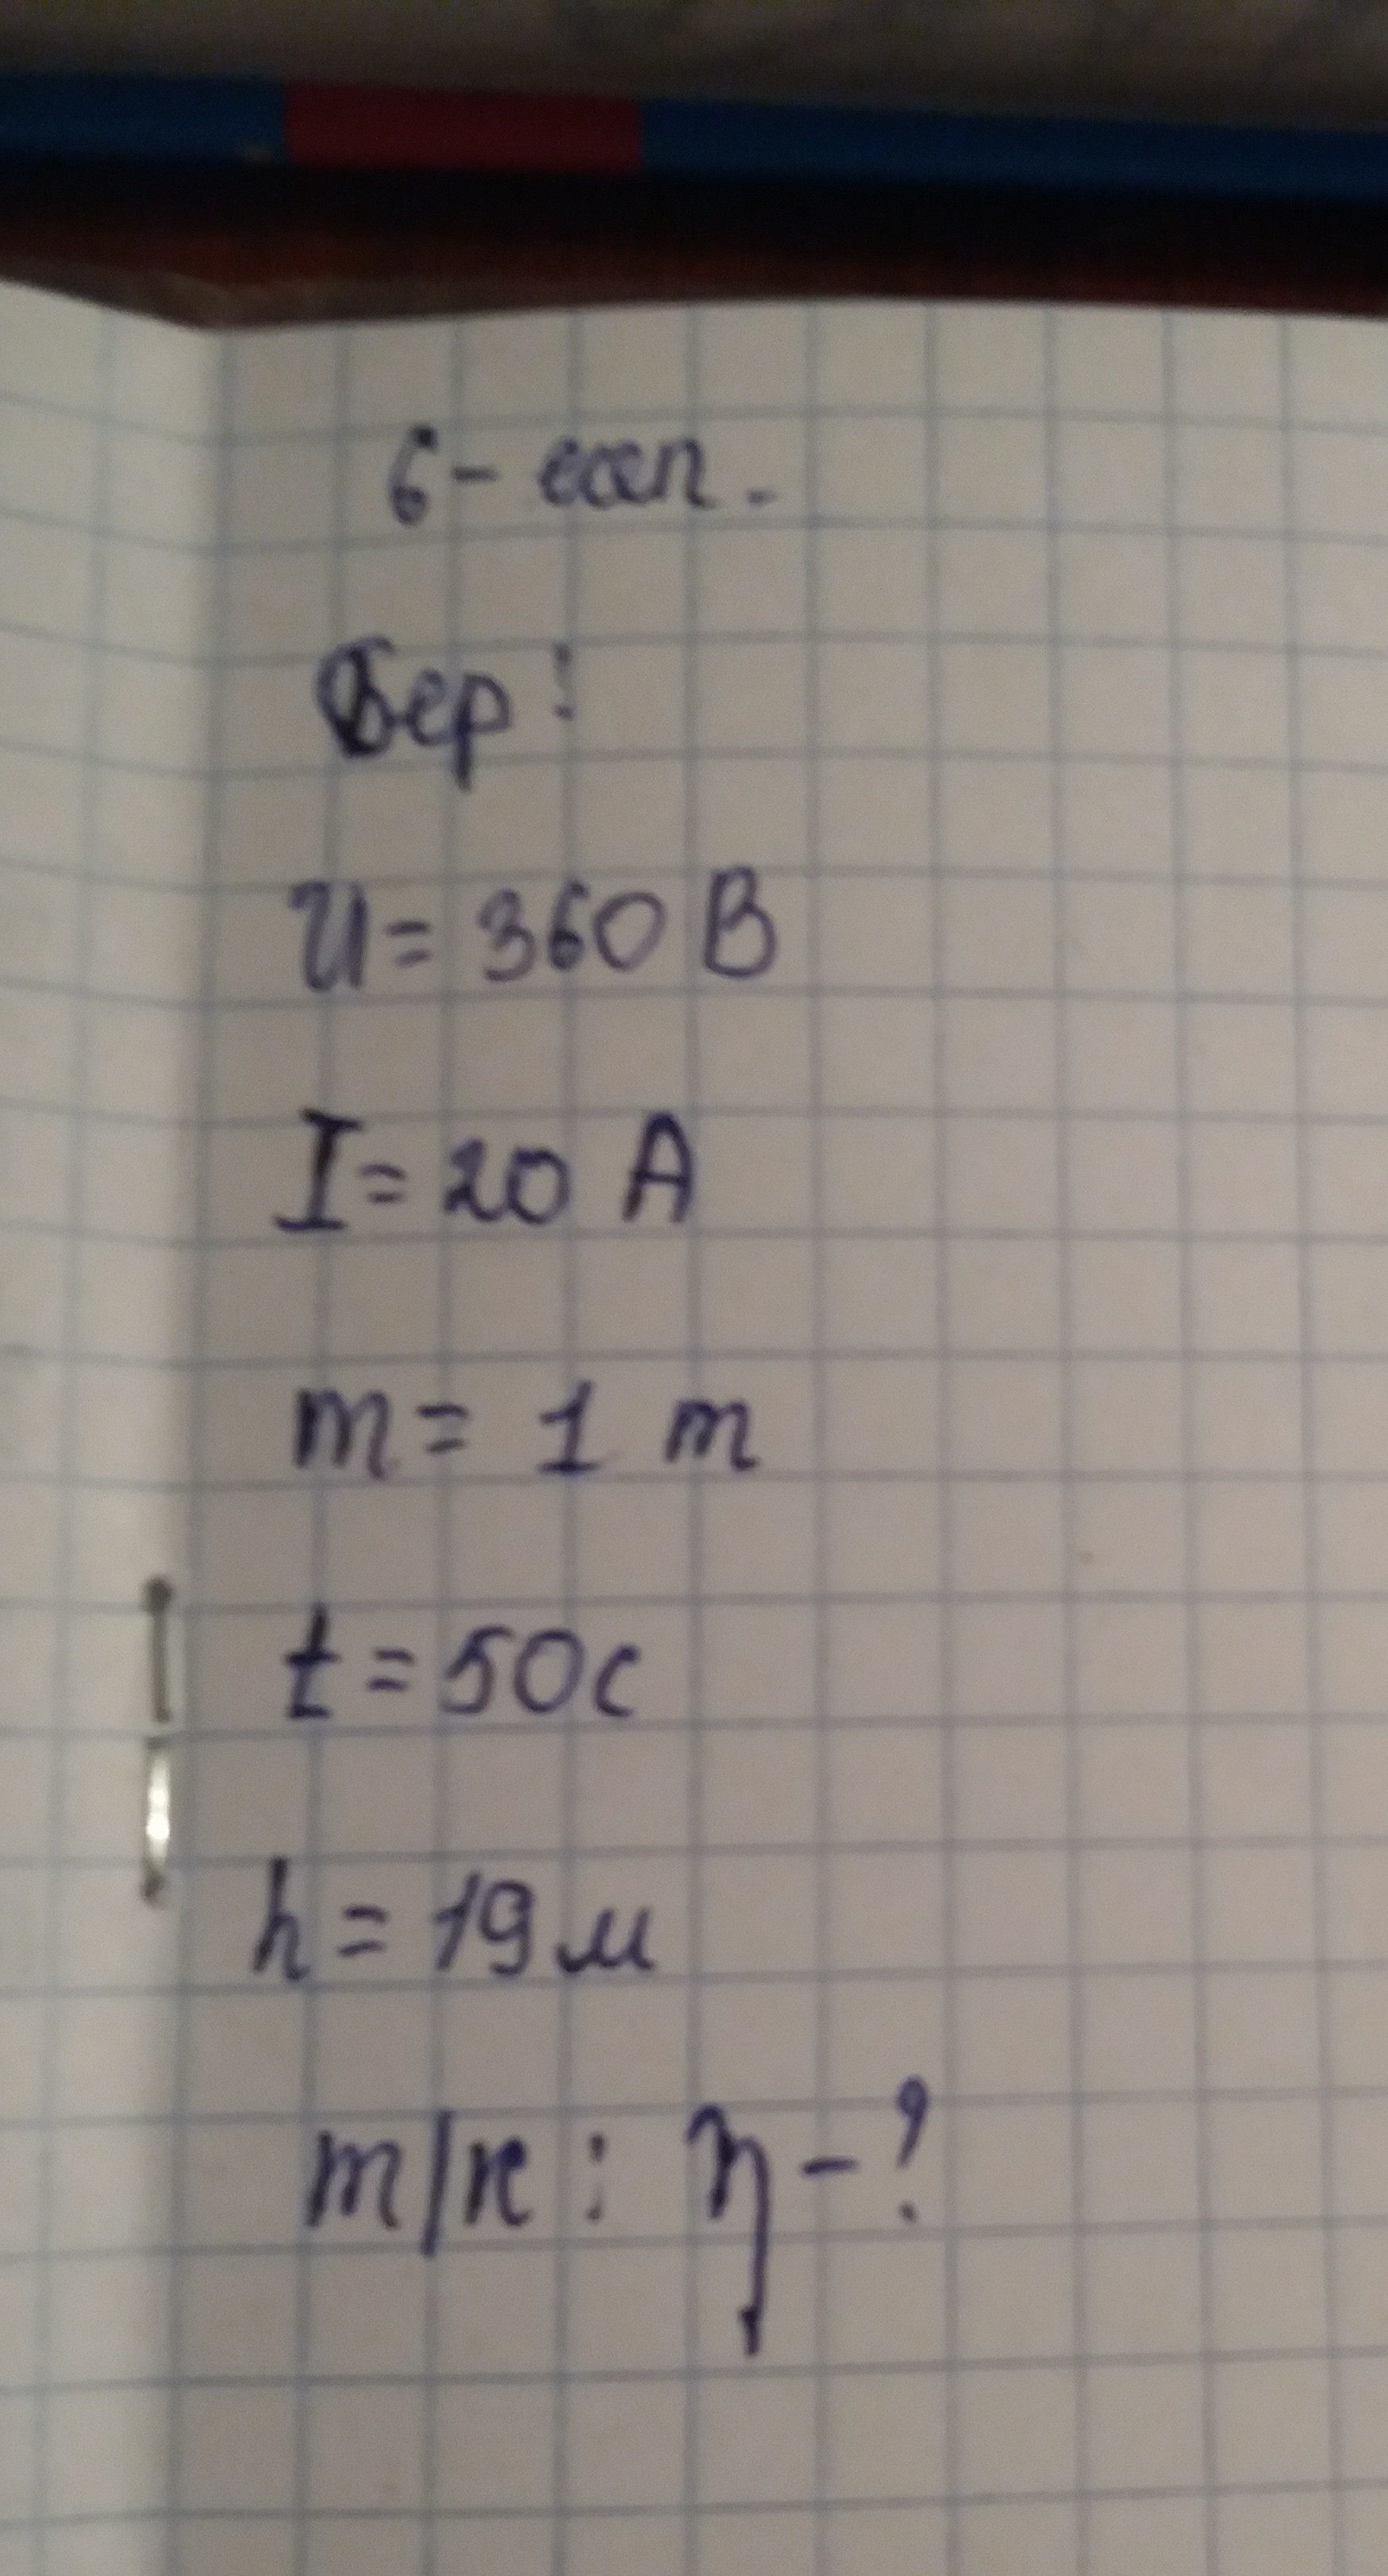 6- есеп.
Бер:
U = 360 В
I = 20 А
m = 1 т
t = 50с
h = 19м
т/к: η - ?